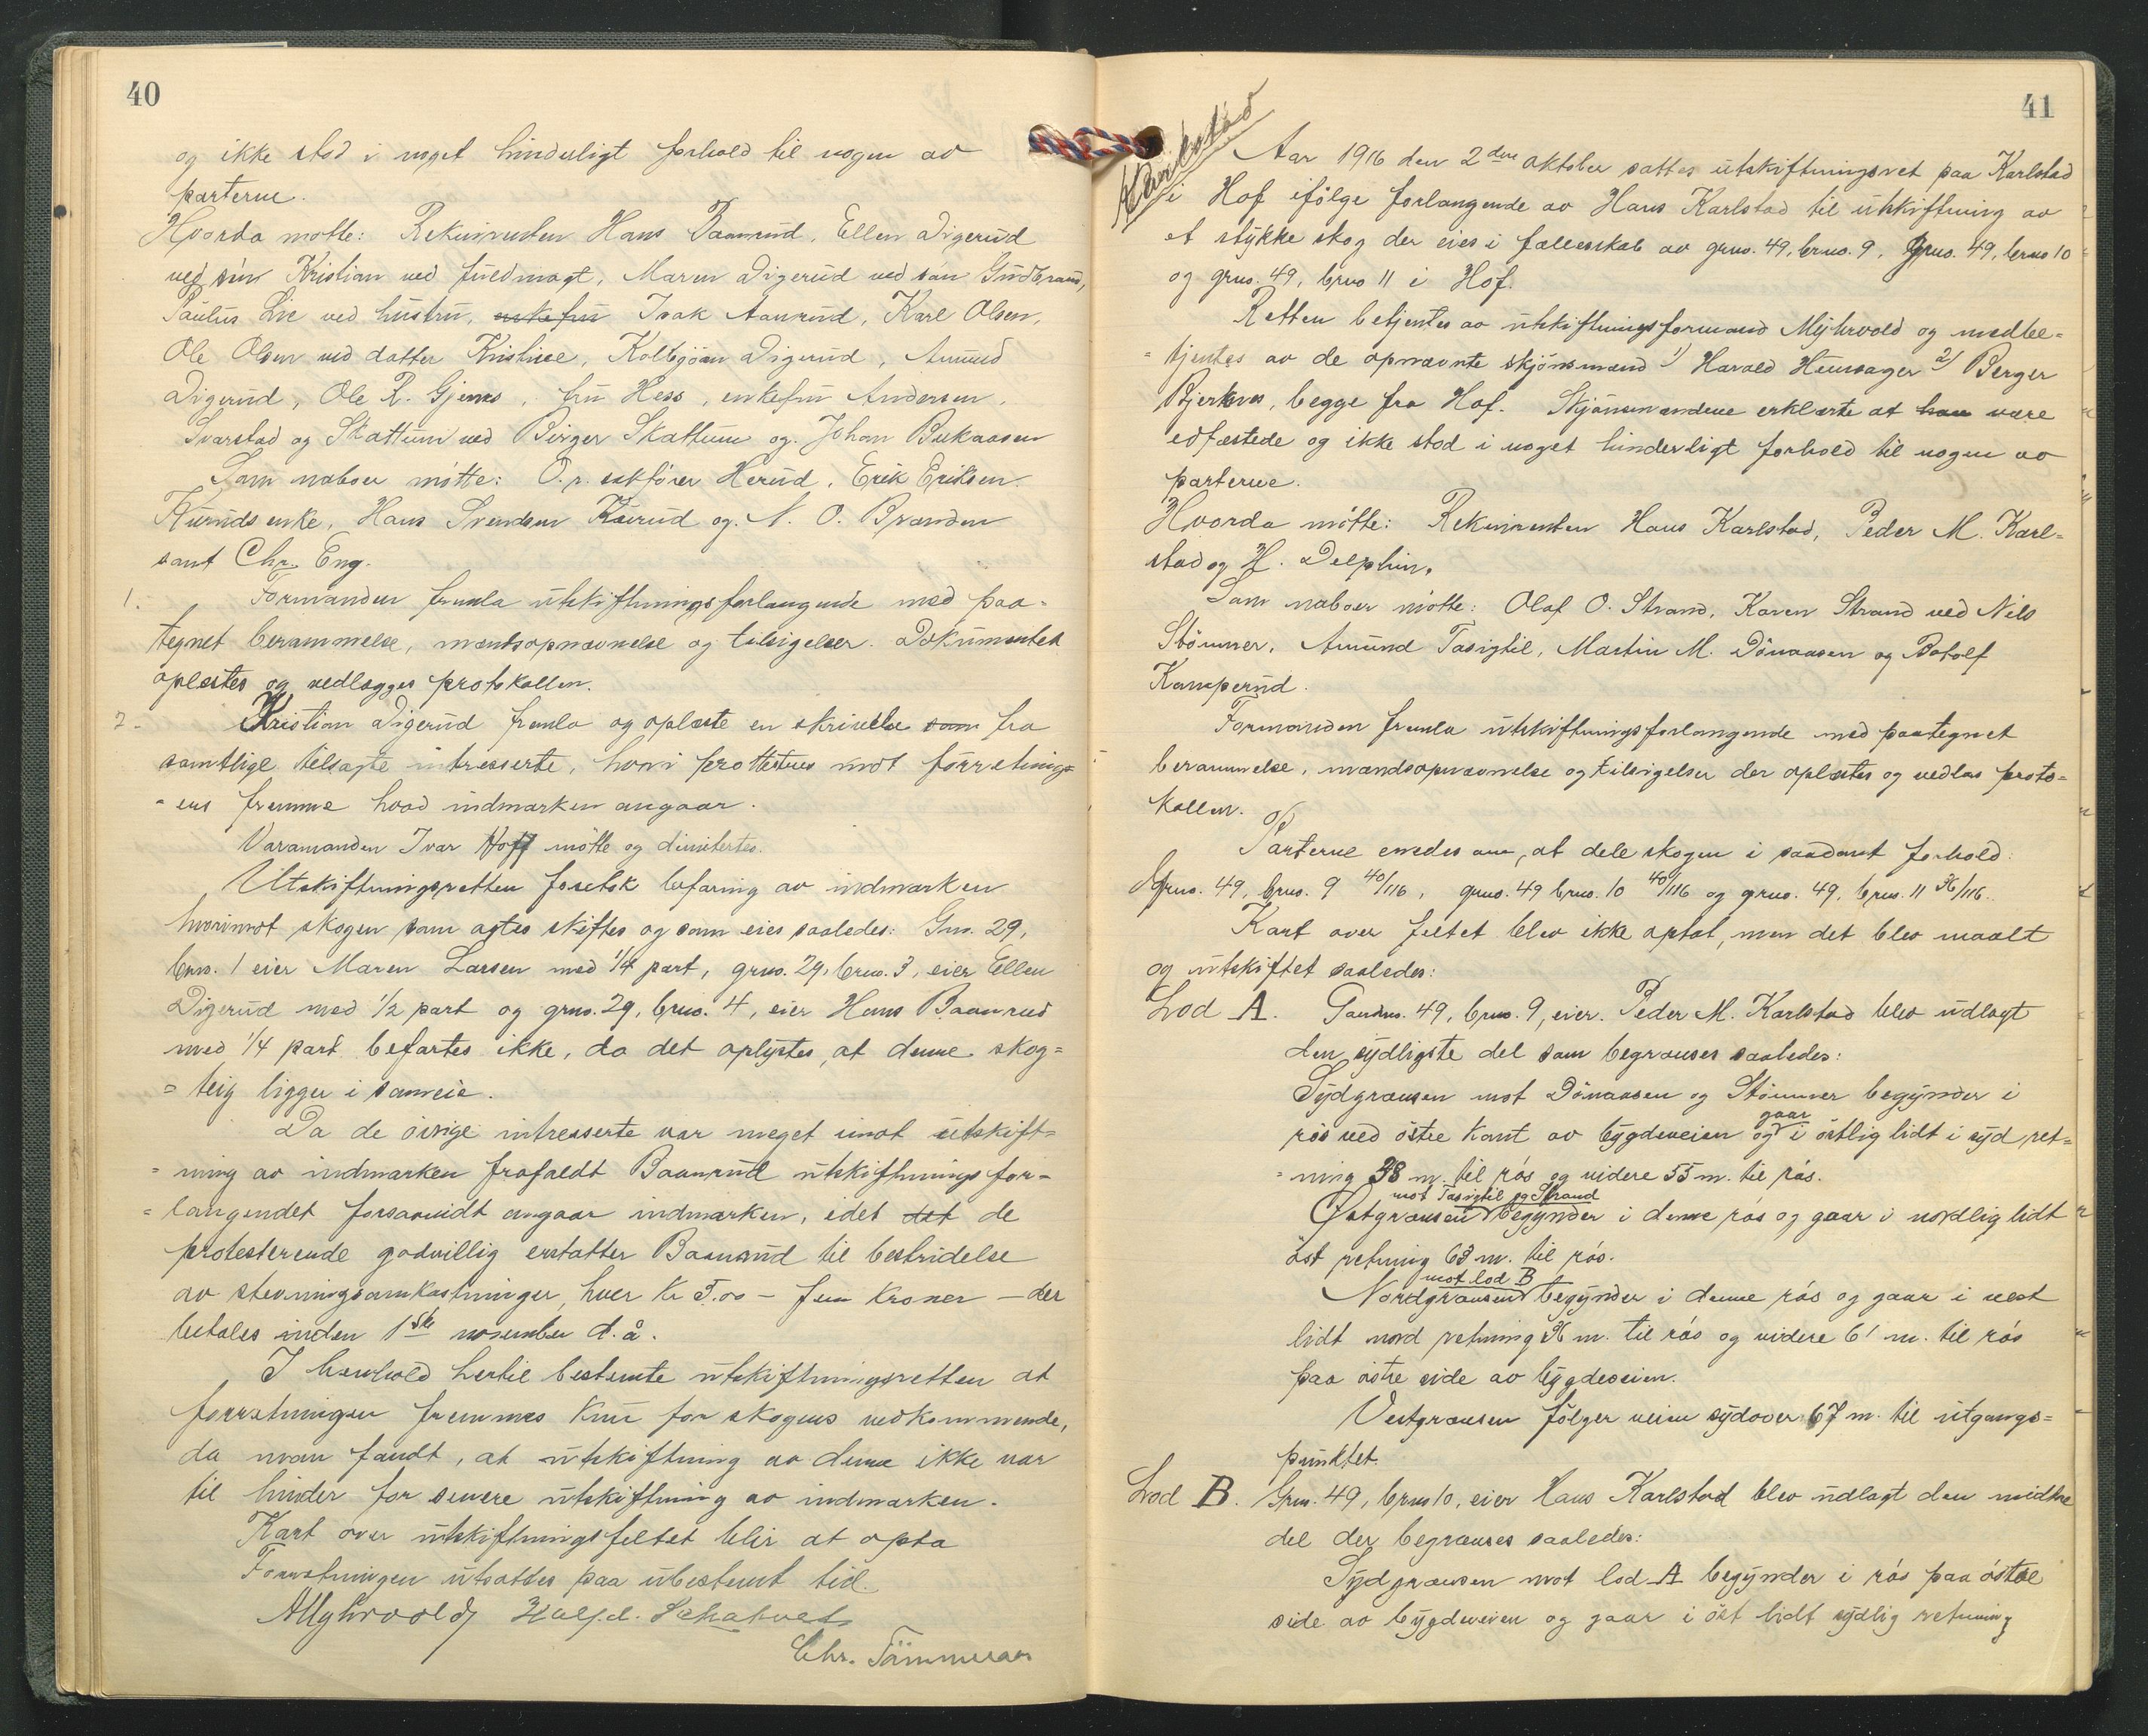 40
og ikke stod i noget hinderligt forhold til nogen av
parterne.
Hvorda møtte: Rekvirenten Hans Baanrud, Ellen Digerud
ved sön Kristian ved fuldmagt, Maren Digerud ved sön Gudbrand,
Paulus Lie ved hustru, enkefru Isak Aanrud, Karl Olsen,
Ole Olsen ved datter Kristine, Kolbjörn Digerud, Amund
Digerud, Ole R. Gjenes, fru Hess, enkefru Andersen,
Svarstad og Skattum ved Birger Skattum og Johan Bukaasen
Som naboer møtte: O.r. sakfører Herud, Erik Eriksen
enke, Hans Svendsen og N. O. Branden
samt Chr. Eng.
1. Formanden fremla utskiftningsforlangende med paa-
tegnet berammelse, mandsopnævnelse og tilsigelser. Dokumentet
oplæstes og vedlægges protokollen.
2- Kristian Digerud fremla og oplæste en skrivelse som fra
samtlige tilsagte intresserte, hvori prottesteres mot forretning-
-ens fremme hvad indmarken angaar.
Varamanden Ivar Hoff møtte og dimitertes.
Utskiftningsretten foretok befaring av indmarken
hvorimot skogen som agtes skiftes og som eies saaledes: Gno. 29,
brno. 1 eier Maren Larsen med 1/4 part, grno. 29, brno. 3, eier Ellen
Digerud med 1/2 part og grno. 29, brno. 4, eier Hans Baanrud
med 1/4 part befartes ikke, da det oplystes, at denne skog=
=teig ligger i sameie.
Da de øvrige intresserte var meget imot utskift=
=ning av indmarken frafaldt Baanrud utskiftningsfor-
=langendet forsaavidt angaar indmarken, idet det de
protesterende godvillig erstatter Baanrud til bestridelse
av stevningsomkostninger, hver Kr 5.00 – fem Kroner – der
betales inden 1ste november d.å.
I henhold hertil bestemte utskiftningsretten at
forretningen fremmes kun for skogens vedkommende,
da man fandt, at utskiftning av denne ikke var
til hinder for senere utskiftning av indmarken.
Kart over utskiftningsfeltet blir at opta
Forretningen utsattes paa ubestemt tid.
AMyhrvold Halfd.
Chr. Tömmeraas
41
Karlstad
Aar 1916 den 2den oktober sattes utskiftningsret paa Karlstad
i Hof ifølge forlangende av Hans Karlstad til utskiftning av
et stykke skog der eies i fællesskab av grno. 49, brno. 9, grno. 49, brno 10
og grno. 49, brno 11 i Hof.
Retten betjentes av utskiftningsformand Myhrvold og medbe=
=tjentes av de opnævnte skjönsmænd 1) Harald Hensager 2) Berger
Bjerknes, begge fra Hof. Skjönsmændene erklærte at han være
edfæstede og ikke stod i noget hinderligt forhold til nogen av
parterne.
Hvorda møtte: Rekvirenten Hans Karlstad, Peder M. Karl=
stad og H. Delphin.
Som naboer møtte: Olaf O. Strand, Karen Strand ved Nils
Stömner, Amund Tasigtil, Martin M. Dönaasen og Botolf
Kamperud.
Formanden fremla utskiftningsforlangende med paategnet
berammelse, mandsopnævnelse og tilsigelser der oplæstes og vedlas proto=
kollen.
Parterne enedes om, at dele skogen i saadant forhold:
Grno. 49, brno. 9 40/116, grno. 49 brno. 10 40/116 og grno. 49, brno. 11 36/116.
Kart over feltet blev ikke optat, men det blev maalt
og utskiftet saaledes:
Lod A. Gaardno. 49, brno. 9, eier. Peder M. Karlstad blev udlagt
den sydligste del som begrænses saaledes:
Sydgrænsen mot Dönaasen og Stömner begynder i
rös ved östre kant av bygdeveien og gaar i östlig lidt i syd ret=
=ning 38 m. til rös og videre 55 m. til rös.
Østgrænsen mot Tasigtil og Strand begynder i denne rös og gaar i nordlig lidt
öst retning 63 m. til rös.
Nordgrænsen mot lod B begynder i denne rös og gaar i vest
lidt nord retning 36 m. til rös og videre 61 m. til rös
paa östre side av bygdeveien.
Vestgrænsen följer veien sydover 67 m. til utgangs=
punktet.
Lod B. Grno. 49, brno 10, eier Hans Karlstad blev udlagt den midtre
del der begrænses saaledes:
Sydgrænsen mot lod A begynder i rös paa östre
side av bygdeveien og gaar i öst lidt sydlig retning